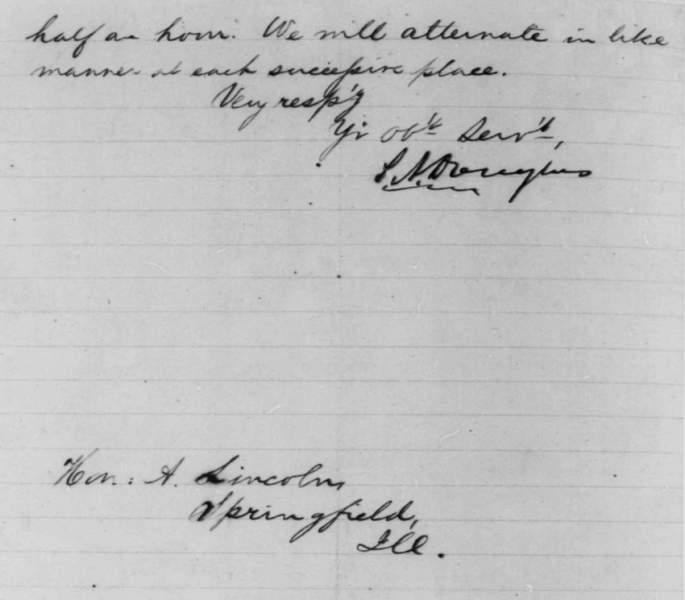 half an hour. We will alternate in like
manner at each successive place.
Very resp'y
Yr obt Servt,
S. A. Douglas
Hon: A. Lincoln,
Springfield,
Ill.